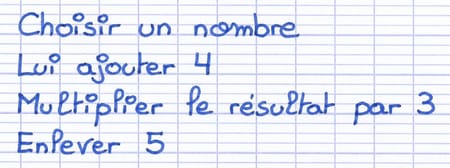 Choisir un nombre
Lui ajouter 4
Multiplier le résultat par 3
Enlever 5